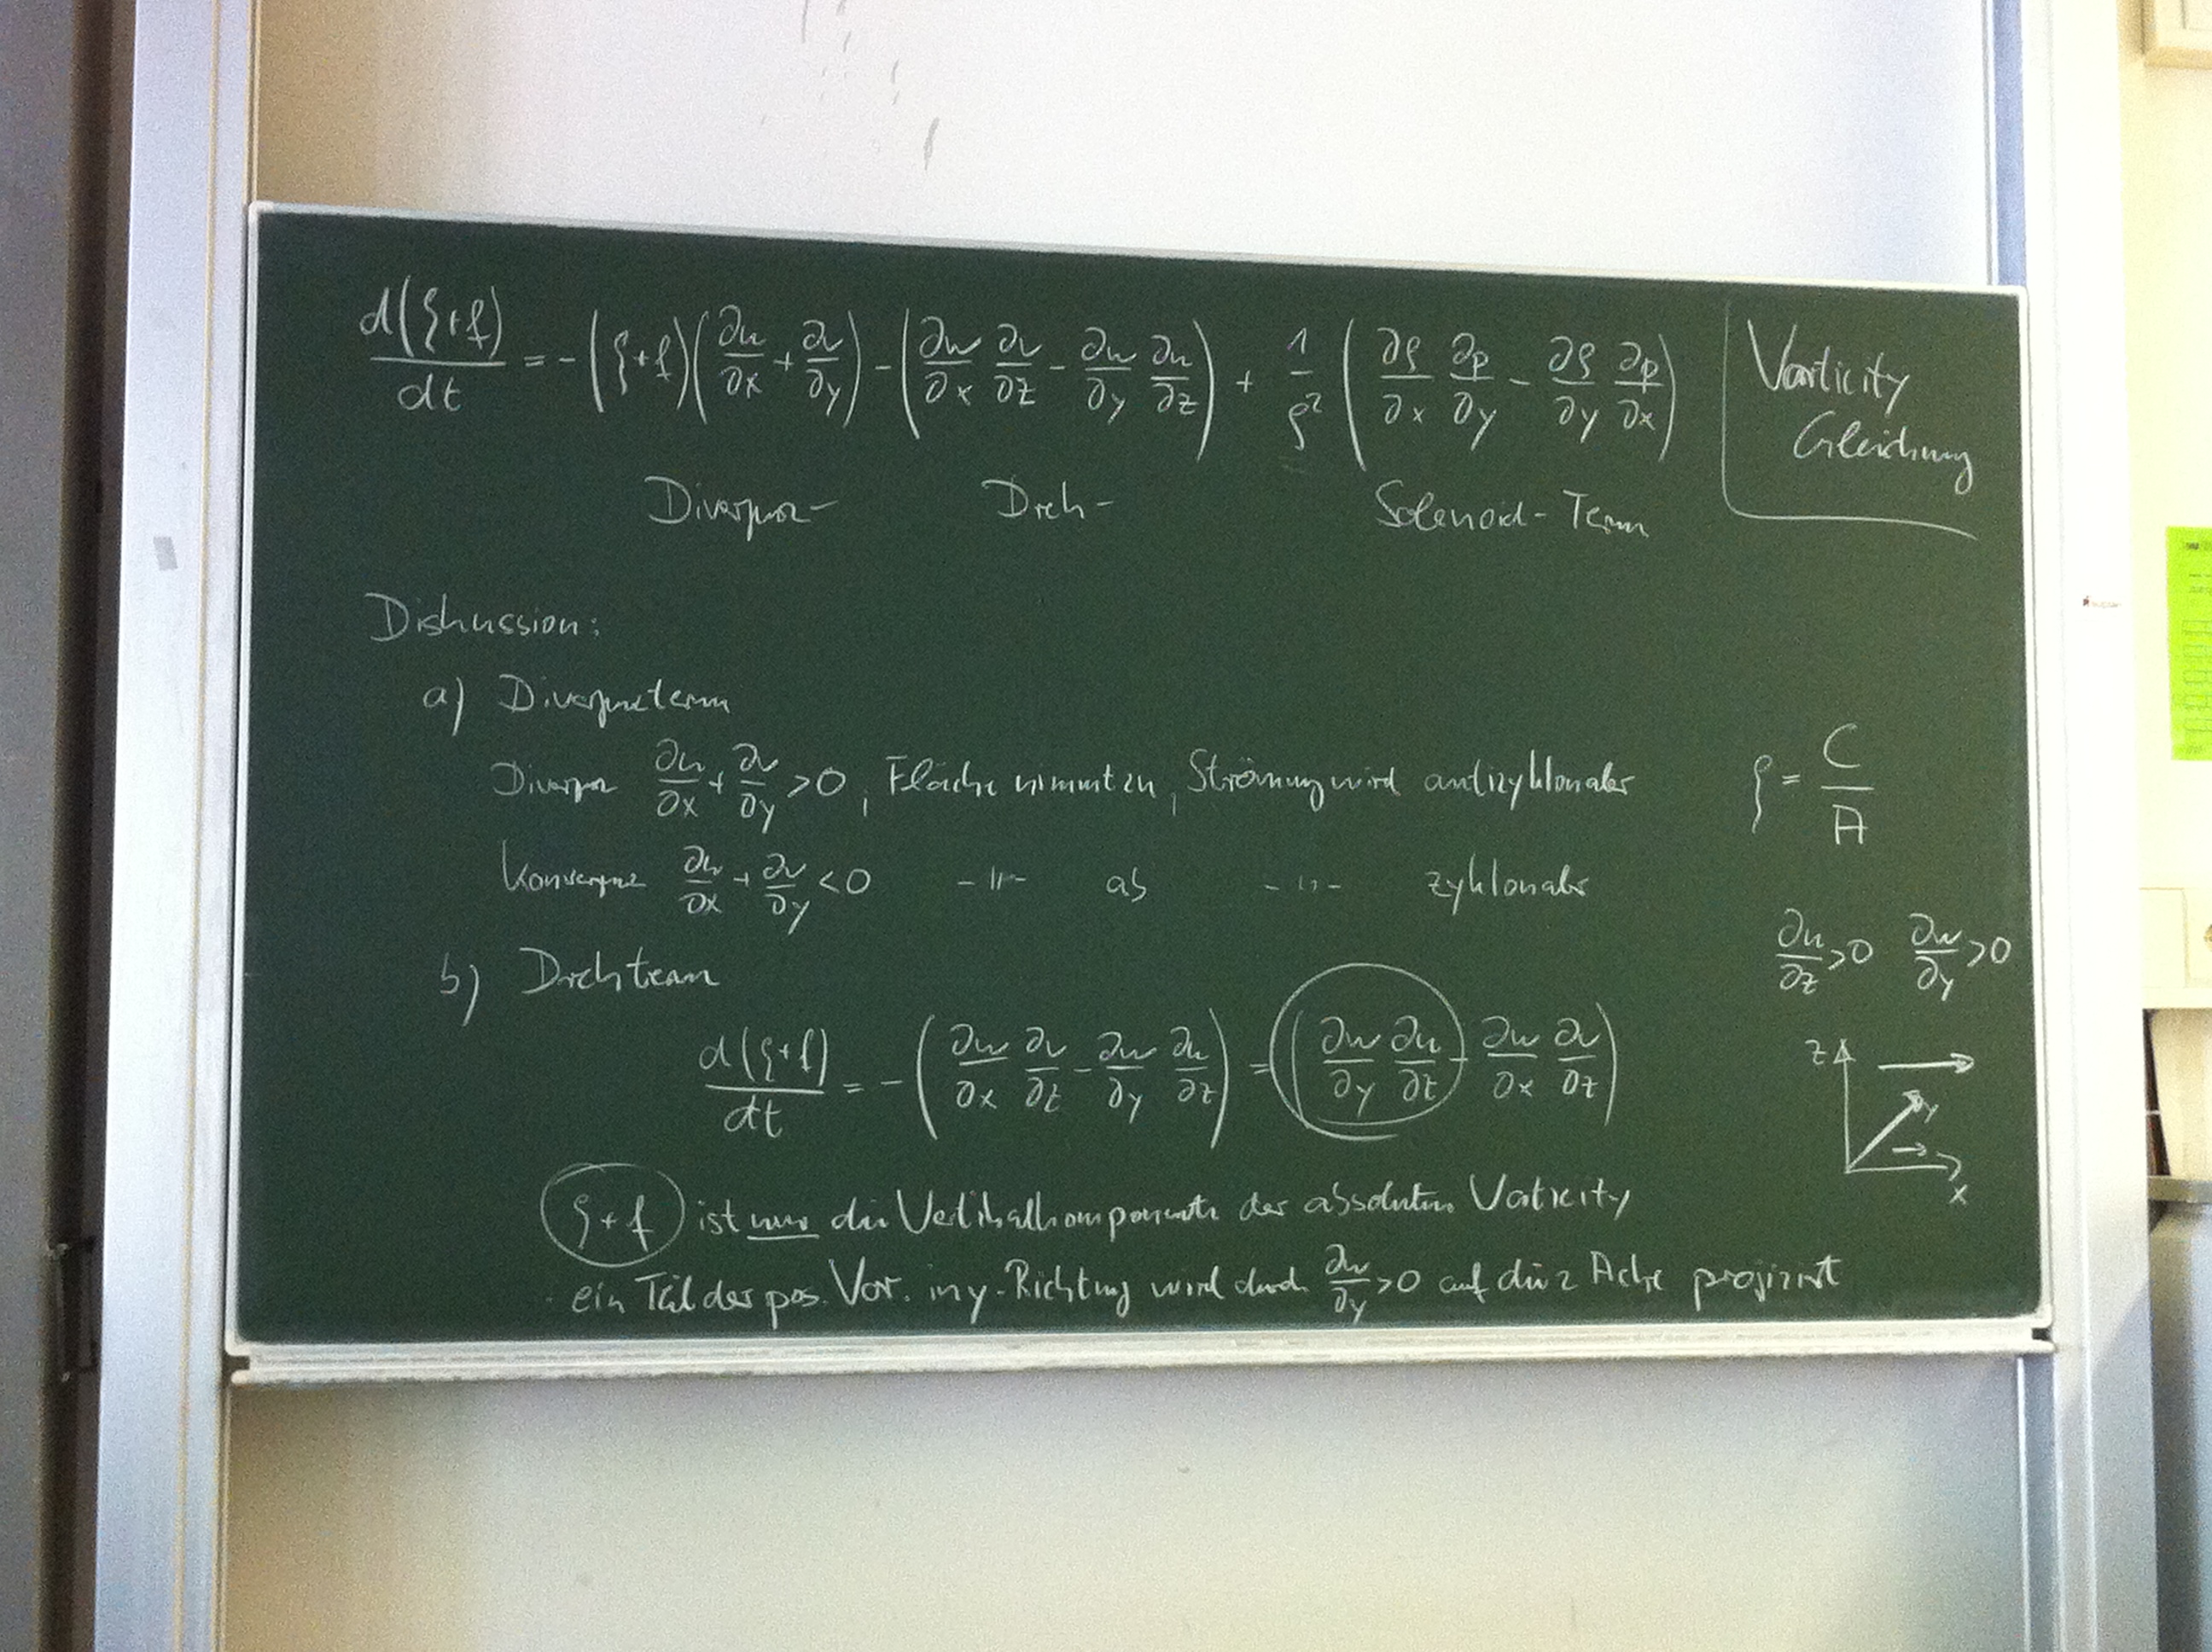 d(ζ+f)/dt = -(ζ+f)(∂u/∂x + ∂v/∂y) - (∂w/∂x ∂v/∂z - ∂w/∂y ∂u/∂z) + 1/ρ² (∂ρ/∂x ∂p/∂y - ∂ρ/∂y ∂p/∂x)
Vorticity
Gleichung
Divergenz- Dreh- Solenoid-Term
Diskussion:
a) Divergenzterm
Divergenz ∂u/∂x + ∂v/∂y > 0, Fläche nimmt zu, Strömung wird antizyklonaler
ζ = C/A
Konvergenz ∂u/∂x + ∂v/∂y < 0 -"- ab -"- zyklonaler
∂u/∂z > 0 ∂w/∂y > 0
b) Drehterm
d(ζ+f)/dt = -(∂w/∂x ∂v/∂z - ∂w/∂y ∂u/∂z) = (∂w/∂y ∂u/∂z - ∂w/∂x ∂v/∂z)
z
y
x
ζ+f ist nur die Vertikalkomponente der absoluten Vorticity
ein Teil der pos. Vor. in y-Richtung wird durch ∂w/∂y > 0 auf die z Achse projiziert